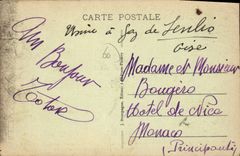 CARTE POSTALE
Usine à Gaz de Senlis
Oise
Un Bonjour
Totor
Madame et Monsieur
Bougero
Hotel de Nice
Monaco
(Principauté)